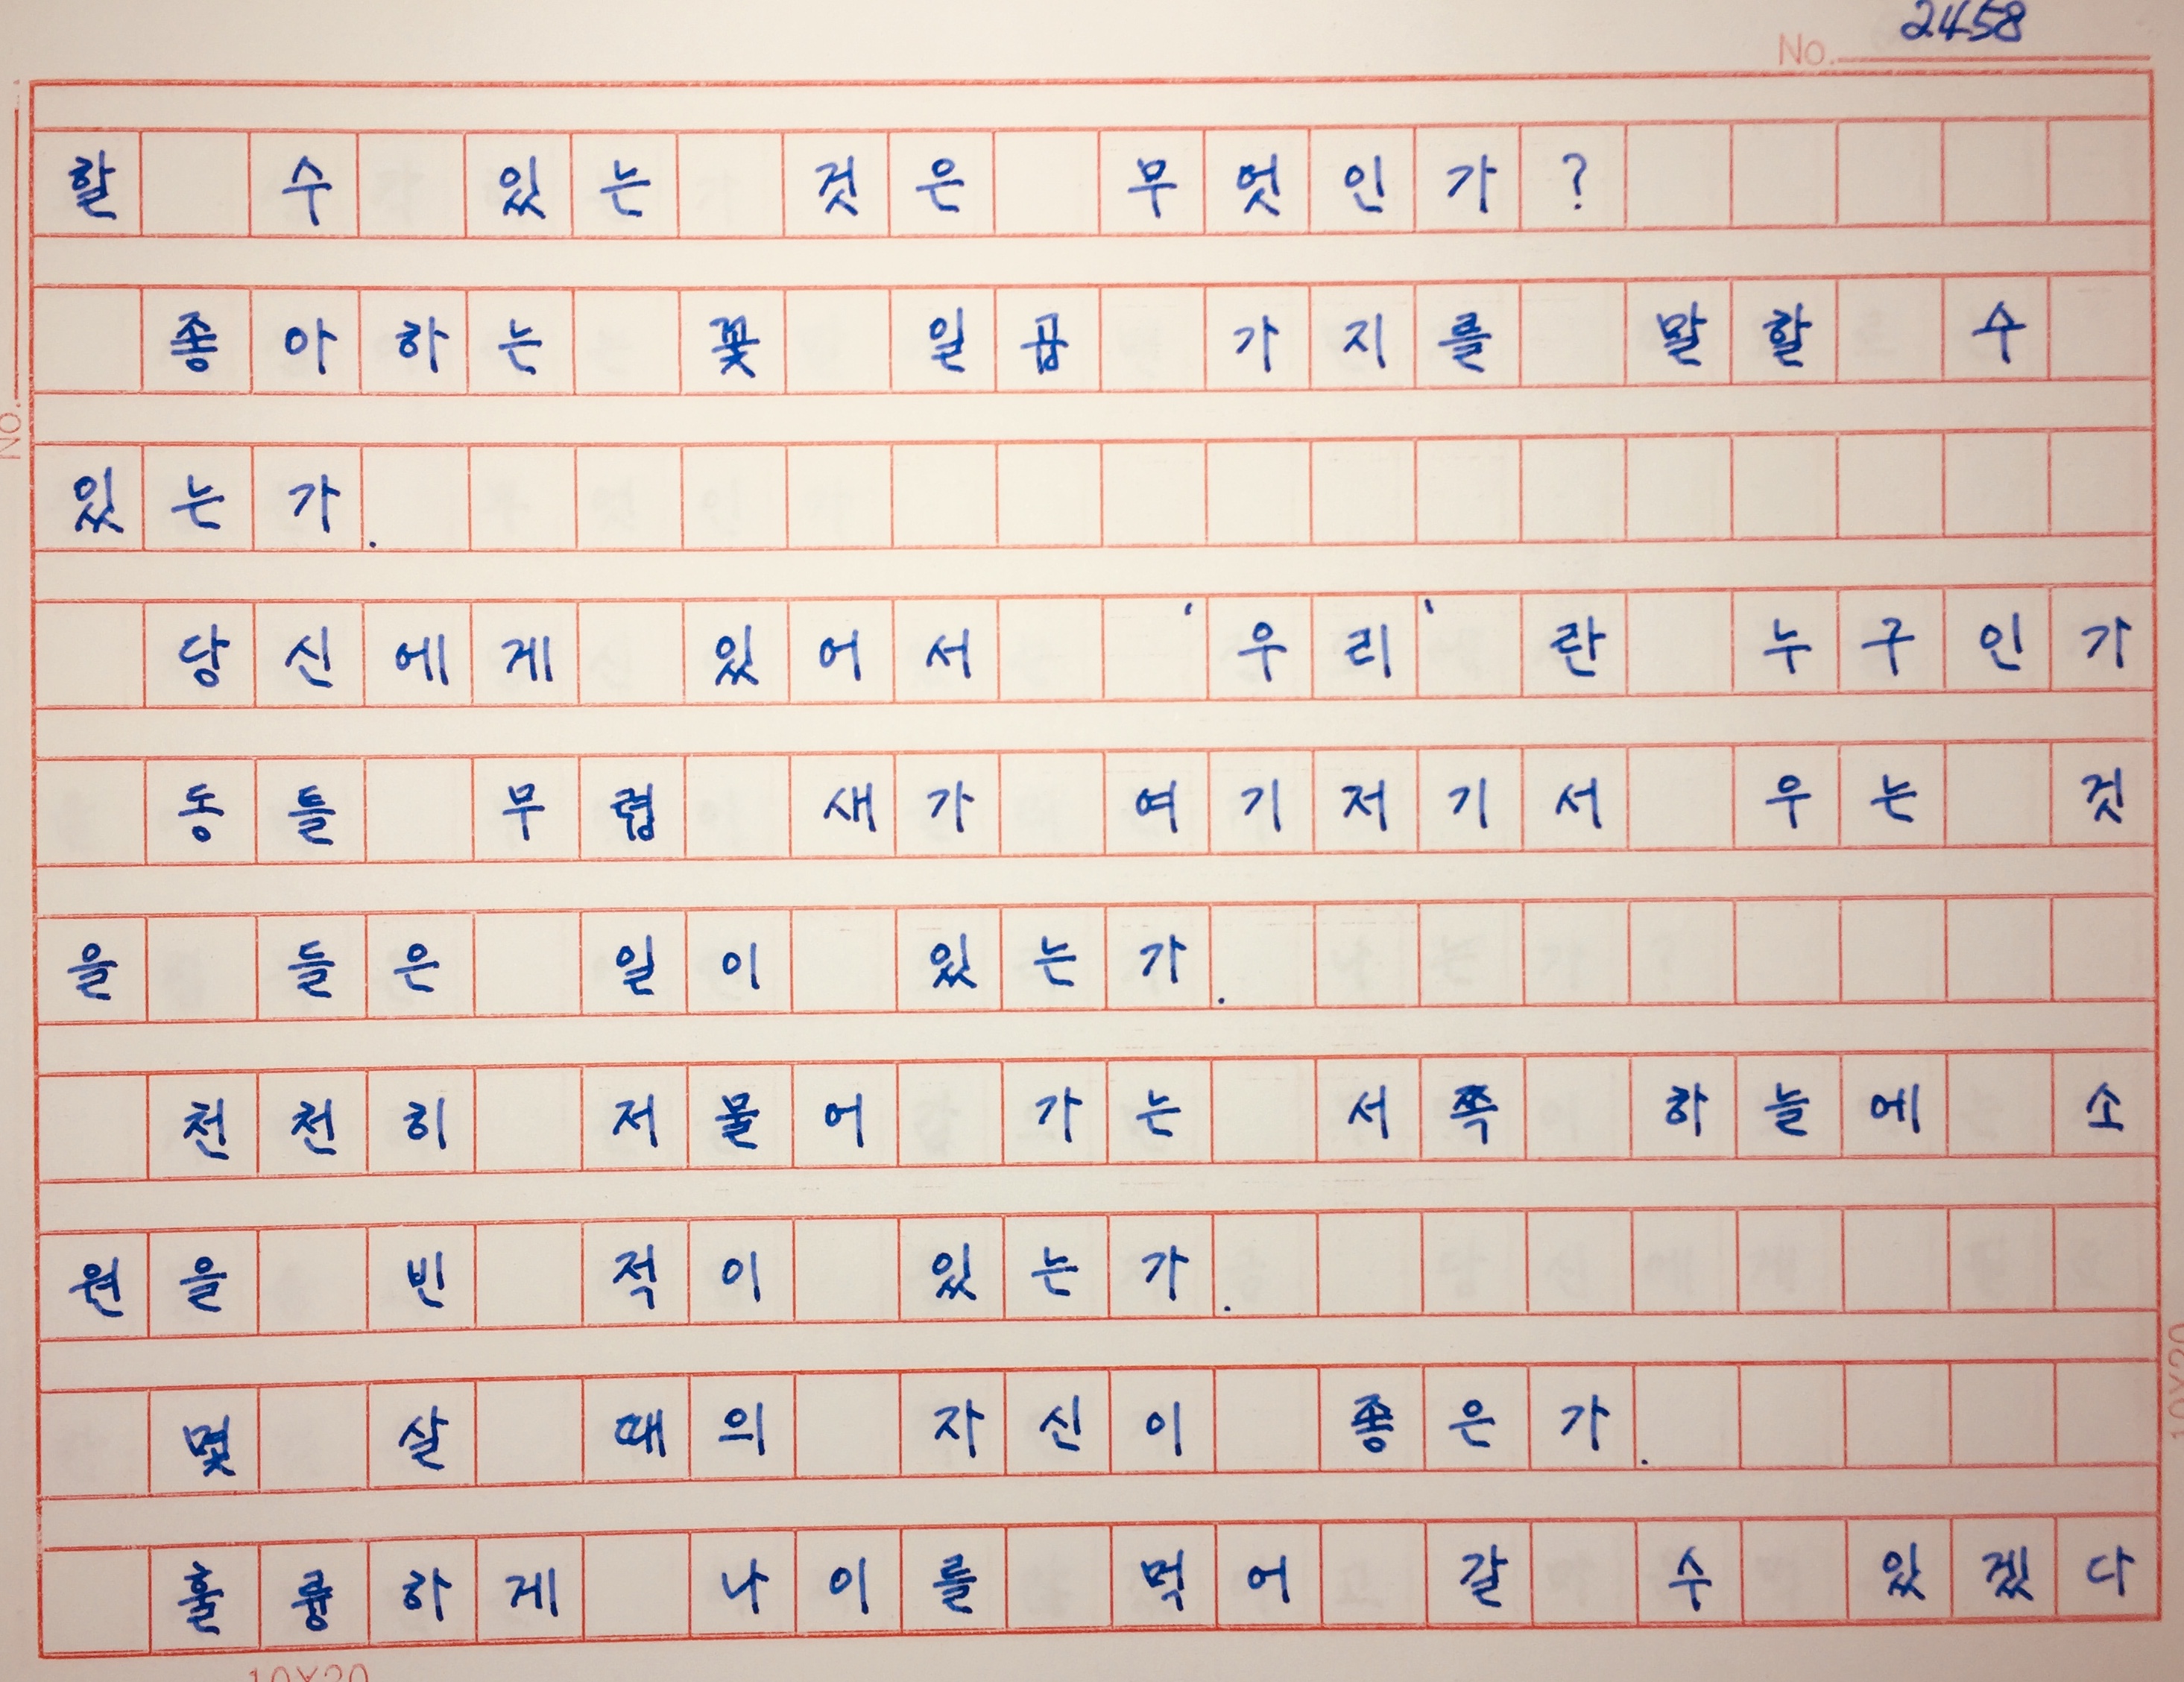 2458
No.
할 수 있는 것은 무엇인가?
좋아하는 꽃 일곱 가지를 말할 수
있는가.
당신에게 있어서 ‘우리‘란 누구인가
동틀 무렵 새가 여기저기서 우는 것
을 들은 일이 있는가.
천천히 저물어 가는 서쪽 하늘에 소
원을 빈 적이 있는가.
몇 살 때의 자신이 좋은가.
훌륭하게 나이를 먹어 갈 수 있겠다
No.
10X20
10X20